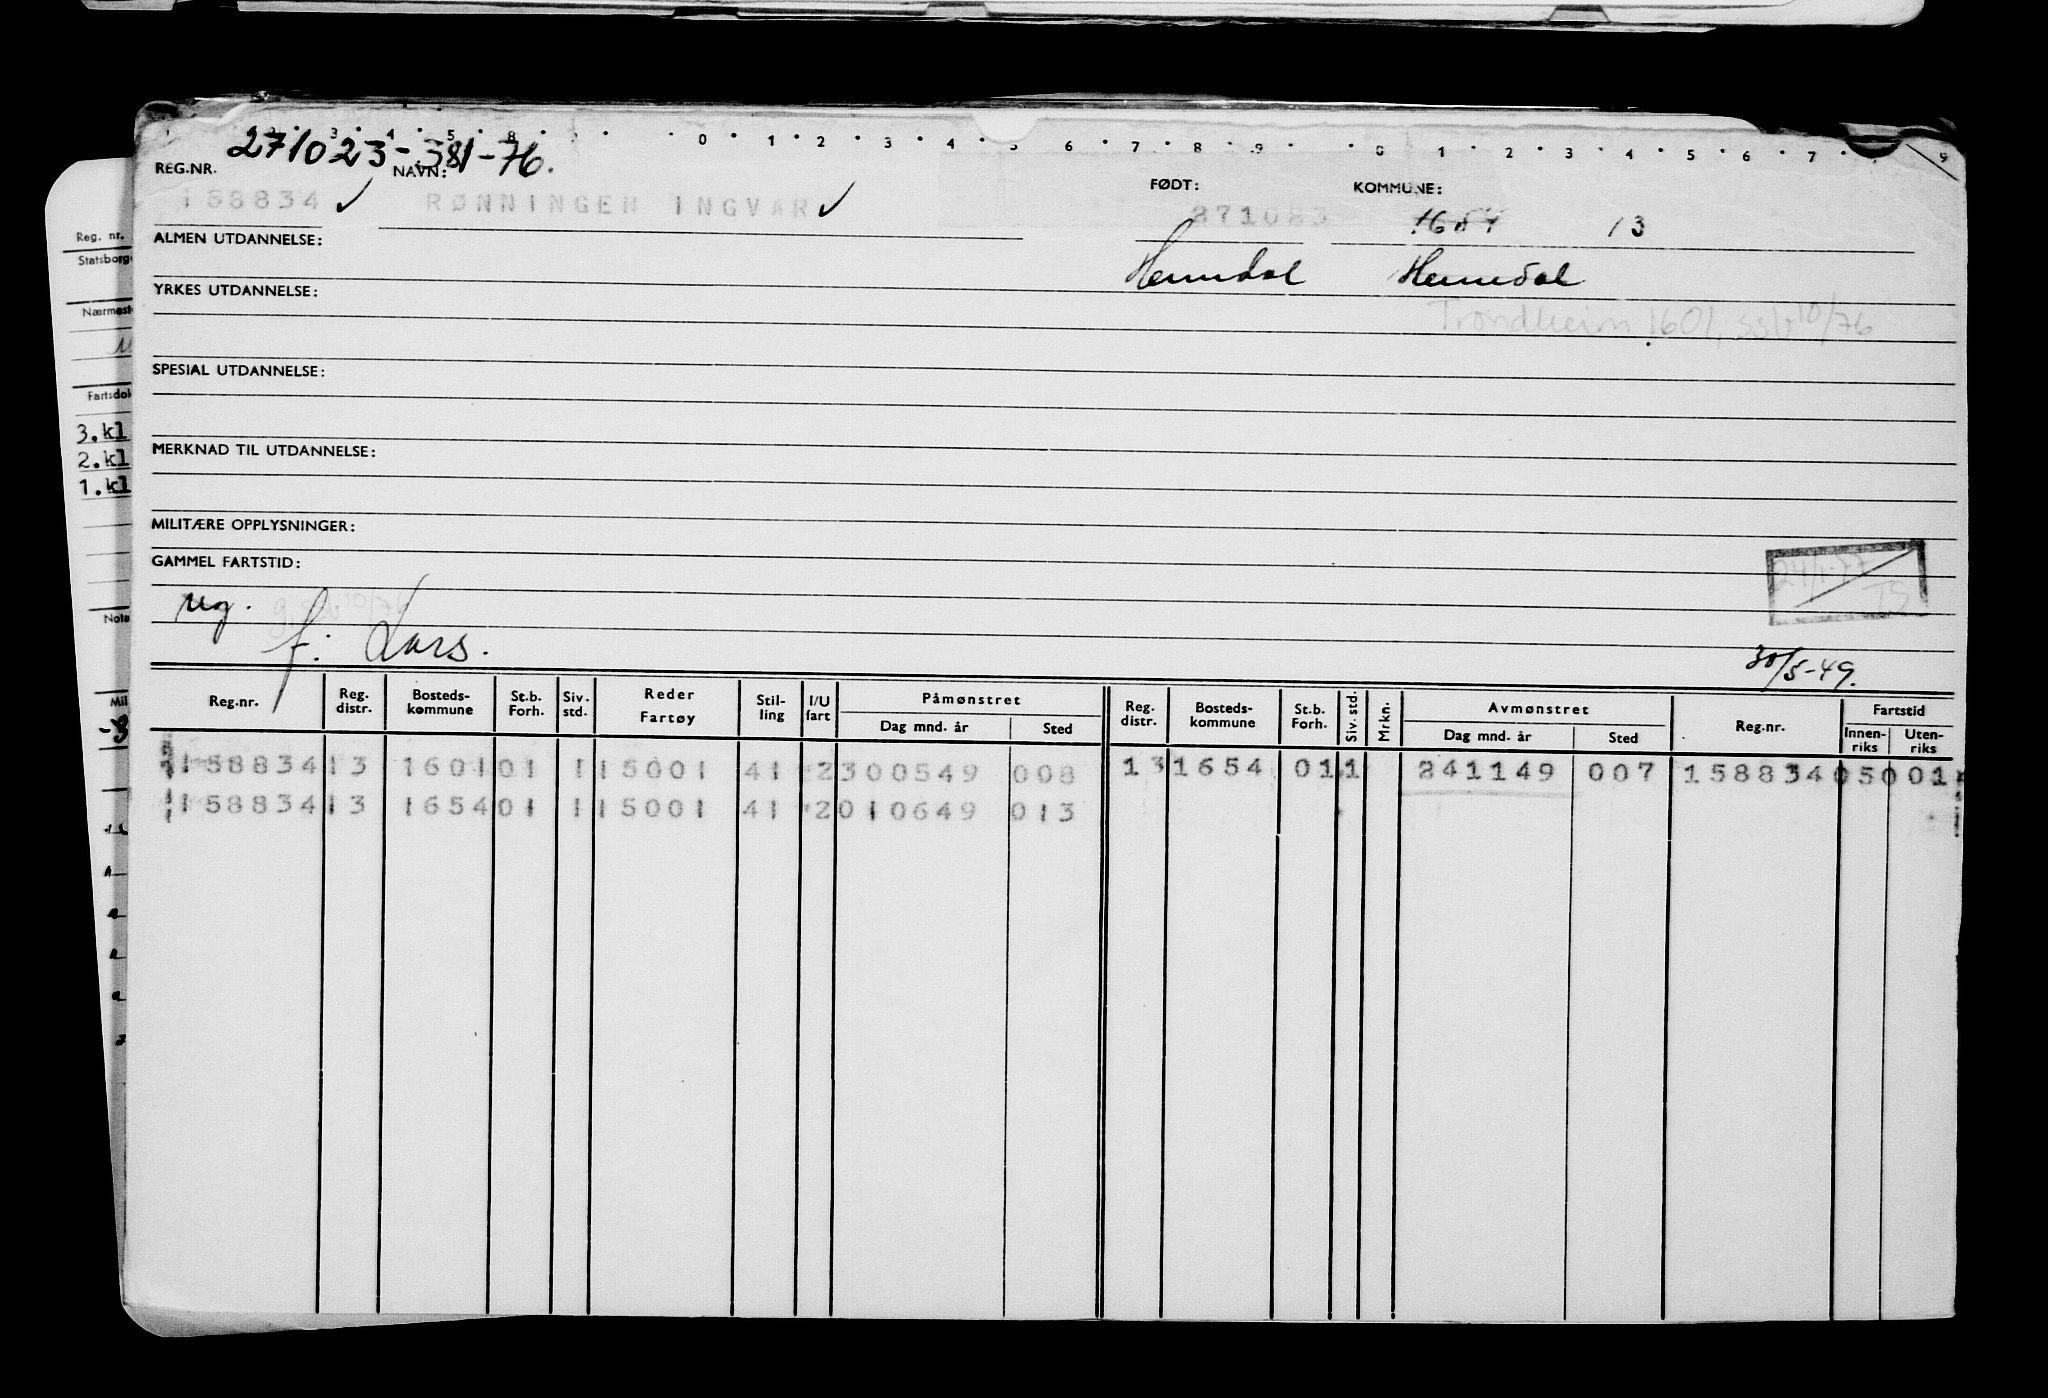 271023-381-76.
REG.NR. NAVN: FØDT: KOMMUNE:
158834 ✓ RØNNINGEN INGVAR ✓ 271023 1654 13
ALMEN UTDANNELSE:
Heimdal Heimdal
YRKES UTDANNELSE:
Trondheim 1601, 10/76
SPESIAL UTDANNELSE:
MERKNAD TIL UTDANNELSE:
MILITÆRE OPPLYSNINGER:
GAMMEL FARTSTID:
24/1-77
reg. 10/76
TS
f: Lars.
30/5-49.
Reg.nr. Reg. distr. Bosteds-kommune St.b. Forh. Siv. std. Reder Fartøy Stil-ling I/U fart Påmønstret Dag mnd. år Sted Reg. distr. Bosteds-kommune St.b. Forh. Siv. std. Mrkn. Avmønstret Dag mnd. år Sted Reg.nr. Fartstid Innen-riks Uten-riks
158834 13 1601 01 1 15001 41 2 300549 008 13 1654 01 1 241149 007 158834 050 01
158834 13 1654 01 1 15001 41 2 010649 013
Reg. nr.
Statsborge
Nærmest
Fartsdok
3.kl
2.kl
1.kl
Nota
Mil